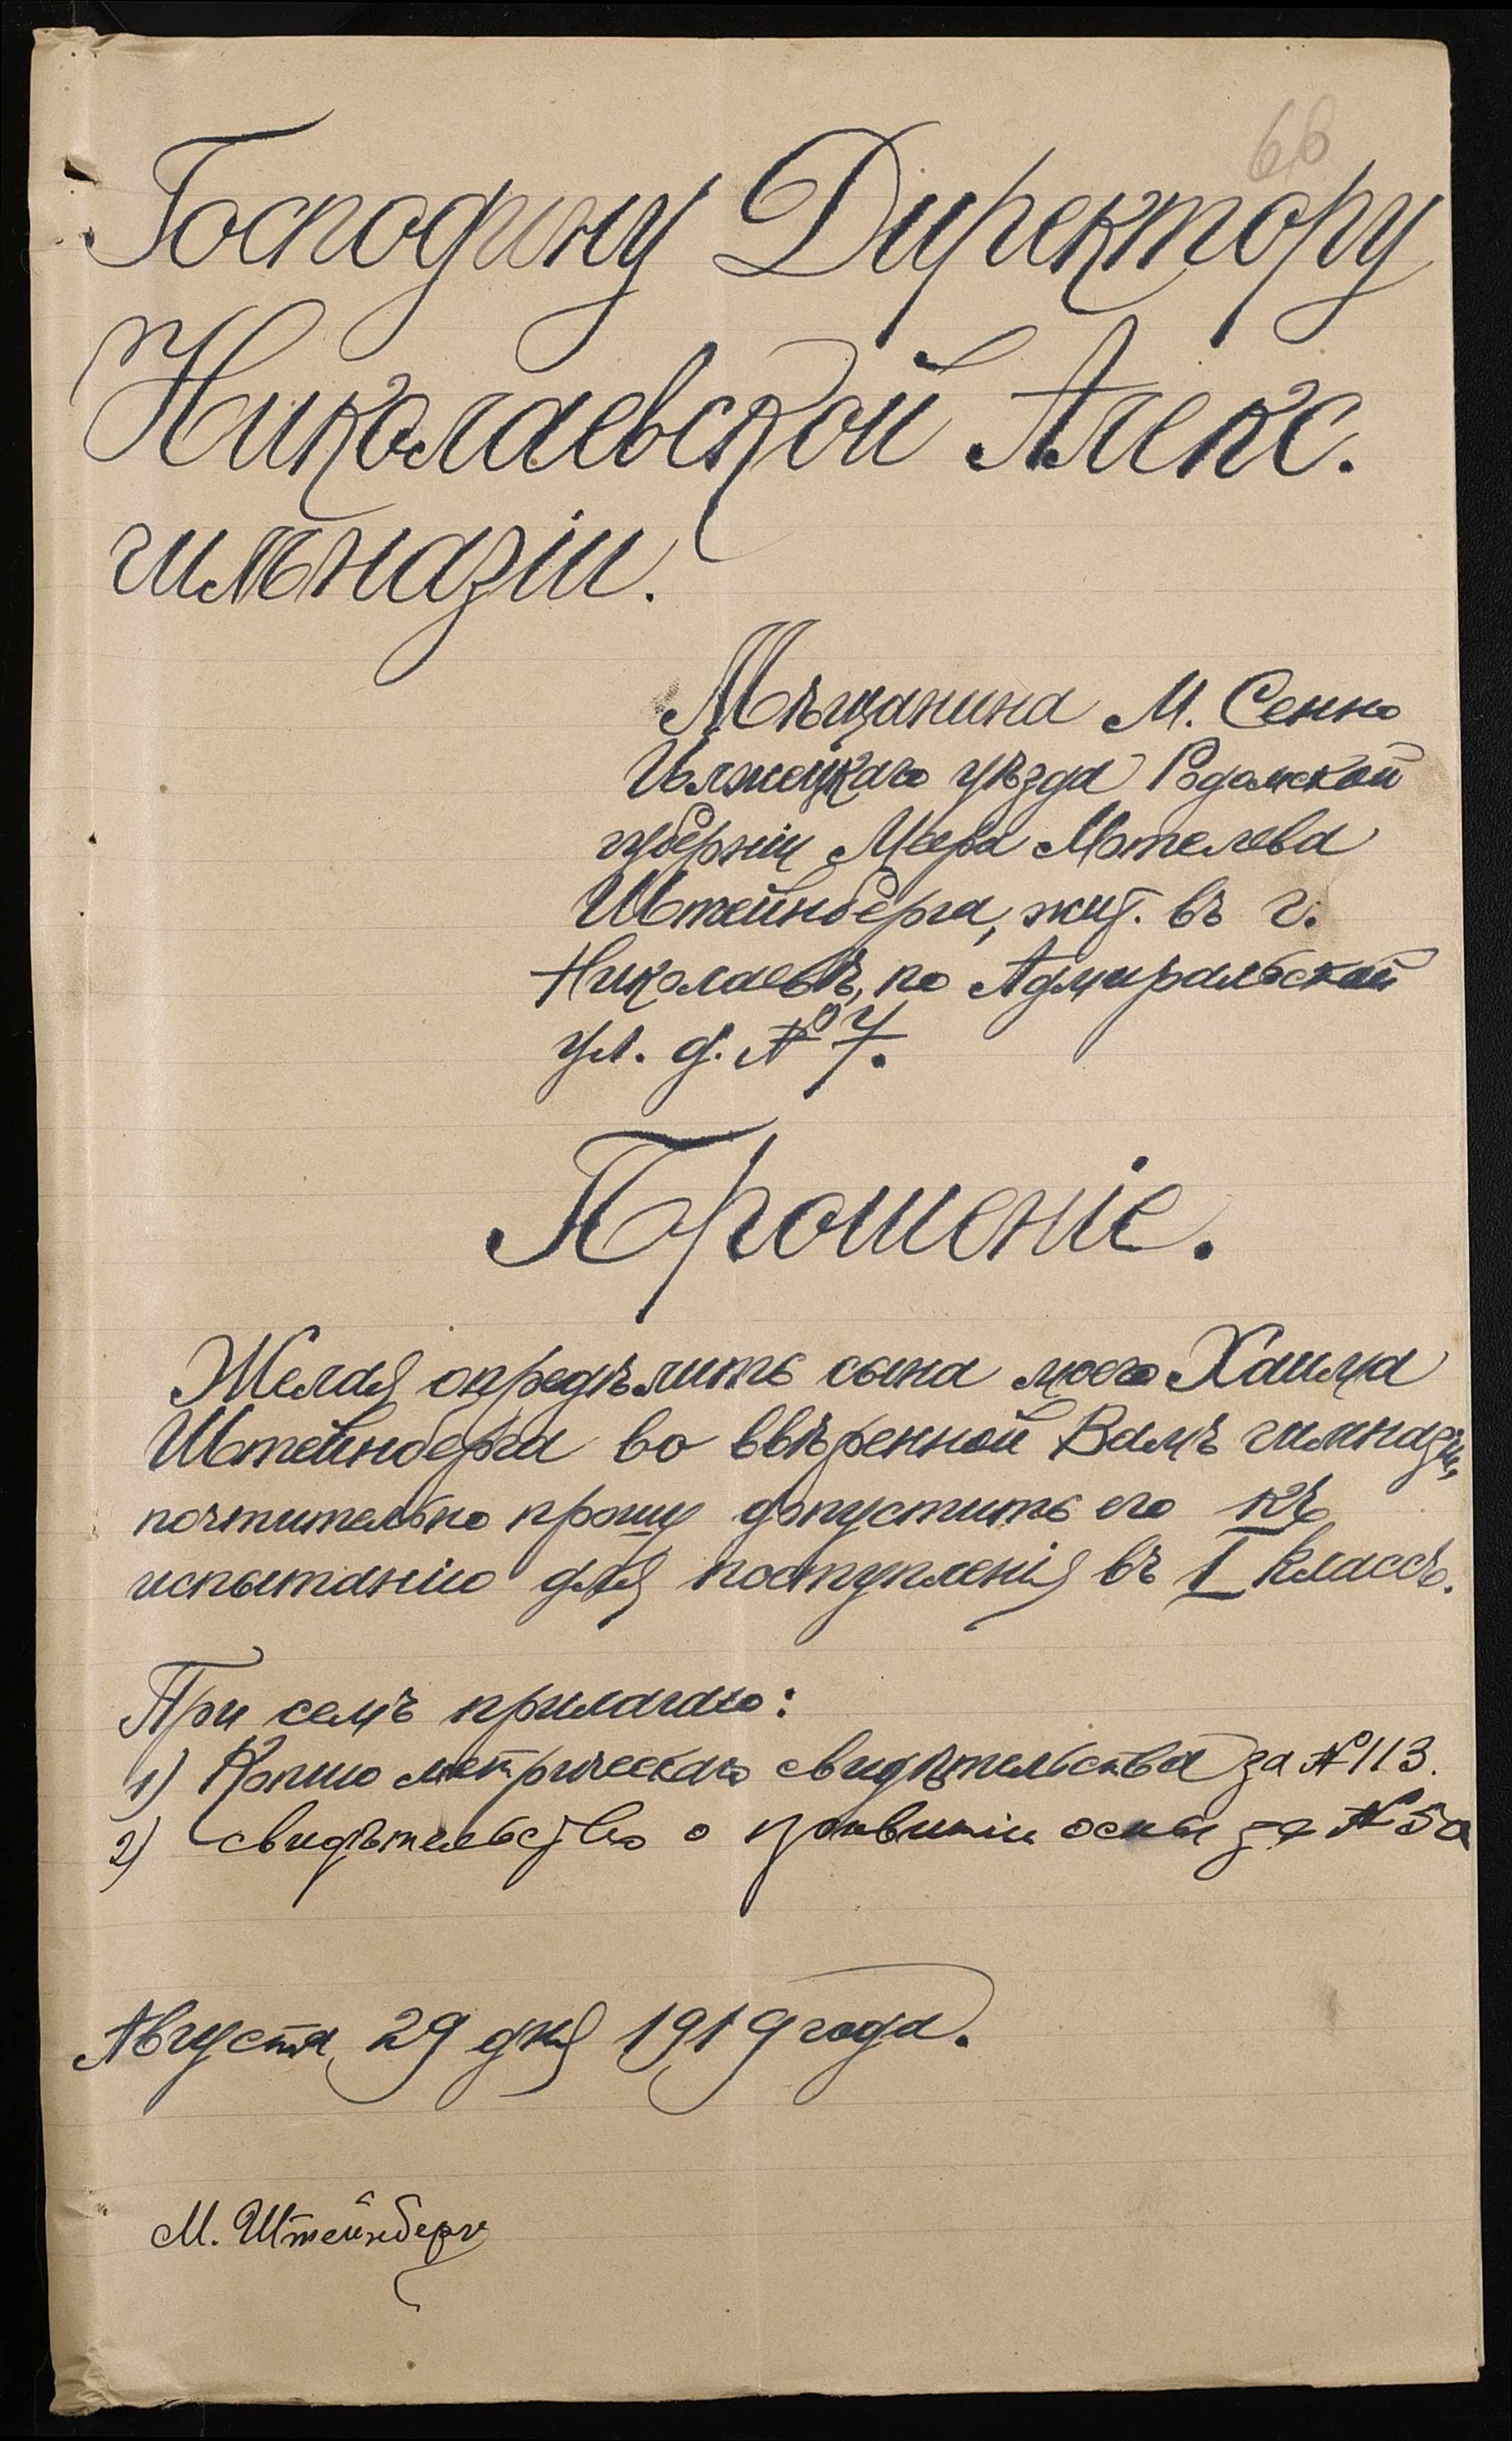 66
Господину Директору
Николаевской Алекс.
гимназіи.
Мѣщанина М. Сенно
Илжецкаго уѣзда Радомской
губерніи Мера Мотелева
Штейнберга, жит. въ г.
Николаевѣ, по Адмиральской
ул. д. № 7.
Прошеніе.
Желая опредѣлить сына моего Хаима
Штейнберга во ввѣренной Вамъ гимназіи,
почтительно прошу допустить его къ
испытанію для поступленія въ I классъ.
При семъ прилагаю:
1) Копию метрическаго свидѣтельства за № 113.
2) свидѣтельство о прививкіи оспы за №
Августа 29 дня 1919 года.
М. Штейнберг